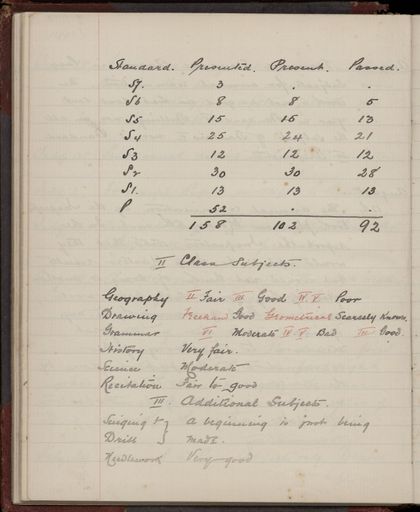 Standard. Presented. Present. Passed.
S7. 3 . .
S6 8 8 5
S5 15 15 13
S4 25 24 21
S3 12 12 12
S2 30 30 28
S1. 13 13 13
P 52 . .
158 102 92
II Class Subjects.
Geography II Fair III Good IV V Poor
Drawing Freehand Good Geometrical Scarcely Known.
Grammar VI Moderate IV V Bad III Good.
History Very fair.
Science Moderate
Recitation Fair to good
III. Additional Subjects.
Singing & } A beginning is just being
Drill } made.
Needlework Very good